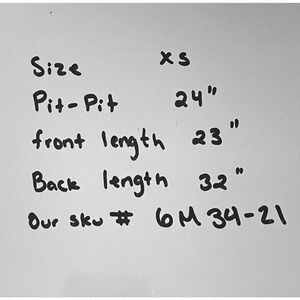 Size XS
Pit-Pit 24"
front length 23"
Back length 32"
Our sku # 6M34-21